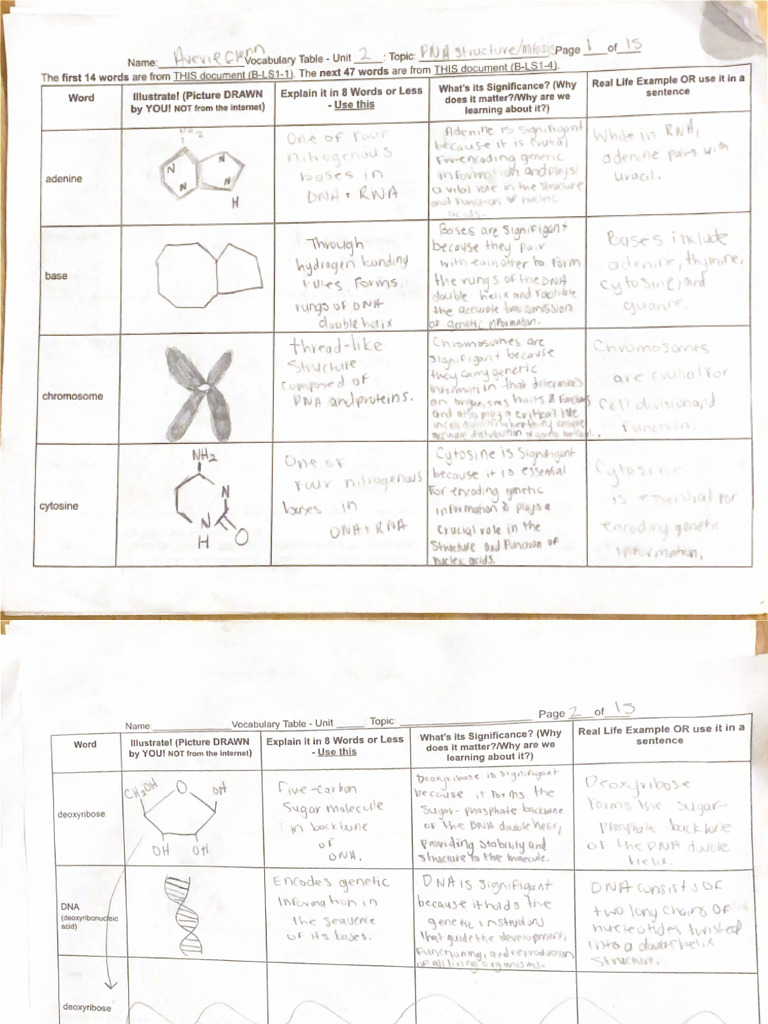 Name: Averie Glenn Vocabulary Table - Unit 2 : Topic: DNA Structure/Mitosis Page 1 of 15
The first 14 words are from THIS document (B-LS1-1). The next 47 words are from THIS document (B-LS1-4).
Word
Illustrate! (Picture DRAWN
by YOU! NOT from the internet)
Explain it in 8 Words or Less
- Use this
What's its Significance? (Why
does it matter?/Why are we
learning about it?)
Real Life Example OR use it in a
sentence
adenine
NH2
N
N
N
N
H
One of four
nitrogenous
bases in
DNA + RNA
Adenine is significant
because it is crutial
for encoding genetic
information and plays
a vital role in the structure
and function of nucleic
acids.
While in RNA,
adenine pairs with
uracil.
base
Through
hydrogen bonding
rules, forms
rungs of DNA
double helix
Bases are signifigant
because they pair
with eachother to form
the rungs of the DNA
double helix and
the accurate transmission
of genetic information.
Bases include
adenine, thymine,
cytosine, and
guanine.
chromosome
thread-like
structure
composed of
DNA and proteins.
Chromosomes are
signifigant because
they carry genetic
information that determines
an organisms traits & functions
and also play a critical role
in cell division where they ensure
accurate distribution of genetic material.
Chromosomes
are crutial for
cell division and
function.
cytosine
NH2
N
N
H
O
One of
four nitrogenous
bases in
DNA + RNA
Cytosine is signifigant
because it is essential
for encoding genetic
information & plays a
crucial role in the
structure and function of
nucleic acids.
Cytosine
is essential for
encoding genetic
information.
Name: Vocabulary Table - Unit : Topic: Page 2 of 15
Word
Illustrate! (Picture DRAWN
by YOU! NOT from the internet)
Explain it in 8 Words or Less
- Use this
What's its Significance? (Why
does it matter?/Why are we
learning about it?)
Real Life Example OR use it in a
sentence
deoxyribose
CH2OH
O
OH
OH
OH
Five-carbon
sugar molecule
in backbone
of
DNA.
Deoxyribose is signifigant
because it forms the
sugar-phosphate backbone
of the DNA double helix,
providing stability and
structure to the molecule.
Deoxyribose
forms the sugar-
phosphate backbone
of the DNA double
helix.
DNA
(deoxyribonucleic
acid)
Encodes genetic
information in
the sequence
of its bases.
DNA is signifigant
because it holds the
genetic instructions
that guide the development,
functioning, and reproduction
of all living organisms.
DNA consists of
two long chains of
nucleotides twisted
into a double helix
structure.
deoxyribose